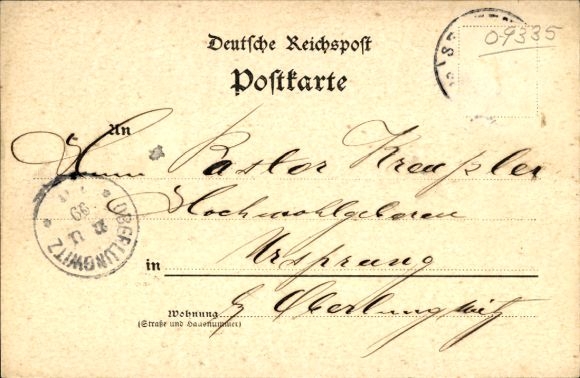 09335
Deutsche Reichspost
Postkarte
An
Herrn Pastor
Hochwohlgeboren
in Ursprung
Wohnung b/ Oberlungwitz
(Straße und Hausnummer)
OBERLUNGWITZ
99